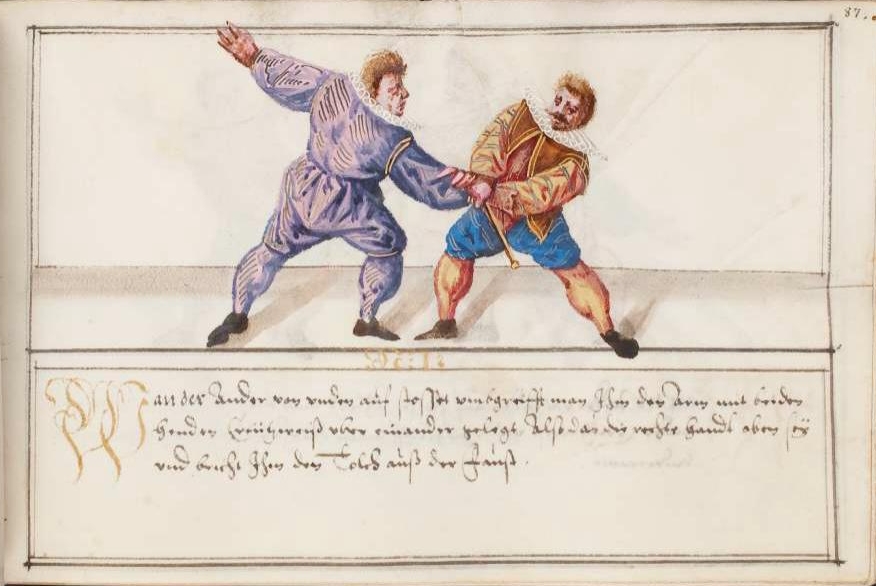 87.
Wan der Ander von unden auf stosset umbgreifft man Ihm den Arm mit beiden
henden Creützweiß uber einander gelegt, Also das die rechte handt oben sey
und bricht Ihm den Tolch auß der Faust.